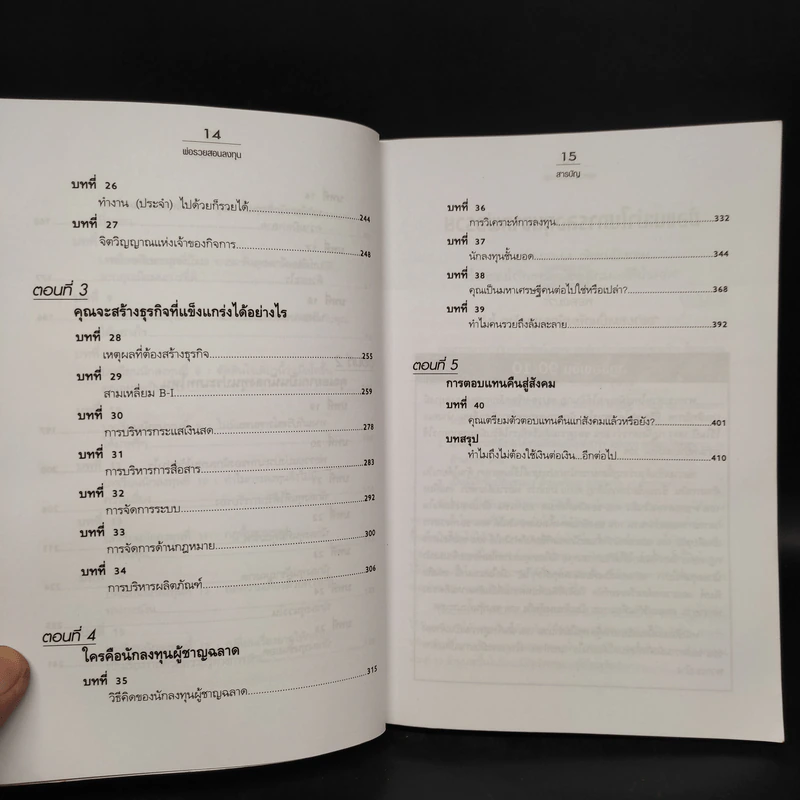 14
พ่อรวยสอนลงทุน
บทที่ 26
ทำงาน (ประจำ) ไปด้วยก็รวยได้ 244
บทที่ 27
จิตวิญญาณแห่งเจ้าของกิจการ 248
ตอนที่ 3
คุณจะสร้างธุรกิจที่แข็งแกร่งได้อย่างไร
บทที่ 28
เหตุผลที่ต้องสร้างธุรกิจ 255
บทที่ 29
สามเหลี่ยม B-I 259
บทที่ 30
การบริหารกระแสเงินสด 278
บทที่ 31
การบริหารการสื่อสาร 283
บทที่ 32
การจัดการระบบ 292
บทที่ 33
การจัดการด้านกฎหมาย 300
บทที่ 34
การบริหารผลิตภัณฑ์ 306
ตอนที่ 4
ใครคือนักลงทุนผู้ชาญฉลาด
บทที่ 35
วิธีคิดของนักลงทุนผู้ชาญฉลาด 315
15
สารบัญ
บทที่ 36
การวิเคราะห์การลงทุน 332
บทที่ 37
นักลงทุนชั้นยอด 344
บทที่ 38
คุณเป็นมหาเศรษฐีคนต่อไปใช่หรือเปล่า? 368
บทที่ 39
ทำไมคนรวยถึงล้มละลาย 392
ตอนที่ 5
การตอบแทนคืนสู่สังคม
บทที่ 40
คุณเตรียมตัวตอบแทนคืนแก่สังคมแล้วหรือยัง? 401
บทสรุป
ทำไมถึงไม่ต้องใช้เงินต่อเงิน...อีกต่อไป 410